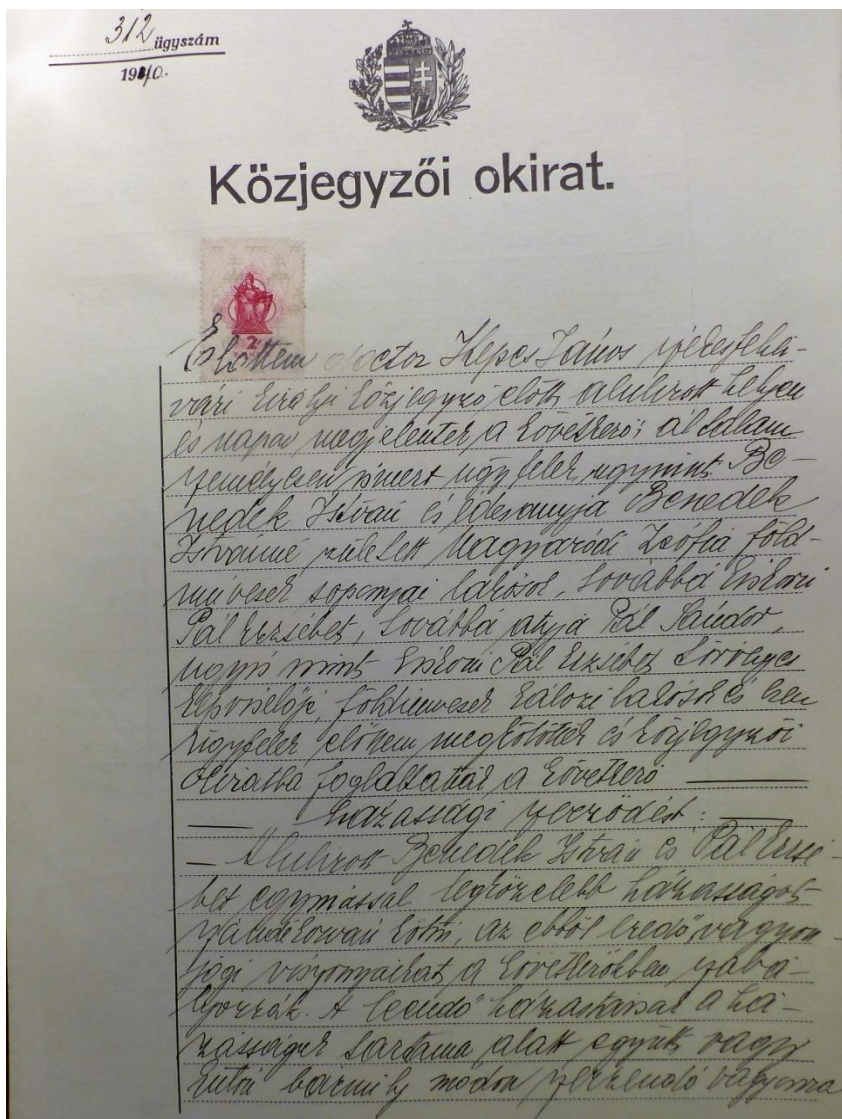 312 ügyszám
1940.
Közjegyzői okirat.
2
Előttem doctor Klepcs János székesfehér-
vári királyi közjegyző előtt alulirott helyen
és napon megjelentek a következő; általam
személyesen ismert ügyfelek ugymint Be-
nedek István és édesanyja Benedek
Istvánné született Magyaródi Zsófia föld-
művesek soponyai lakosok, továbbá kiskorú
Pál Erzsébet, továbbá atyja Pál Sándor,
ugyis mint kiskorú Pál Erzsébet törvényes
képviselője, földmivesek kálozi lakosok és ezen
ügyfelek előttem megkötötték és közjegyzői
okiratba foglaltatták a következő
házassági szerződést:
— Alulirott Benedek István és Pál Erzsé-
bet egymással legközelebb házasságot
szándékozván kötni, az ebből eredő vagyon-
jogi viszonyaikat a következőkben szabá-
lyozzák. A leendő házastársak a há-
zasságuk tartama alatt együtt vagy
külön bármily módon szerzendő vagyonra